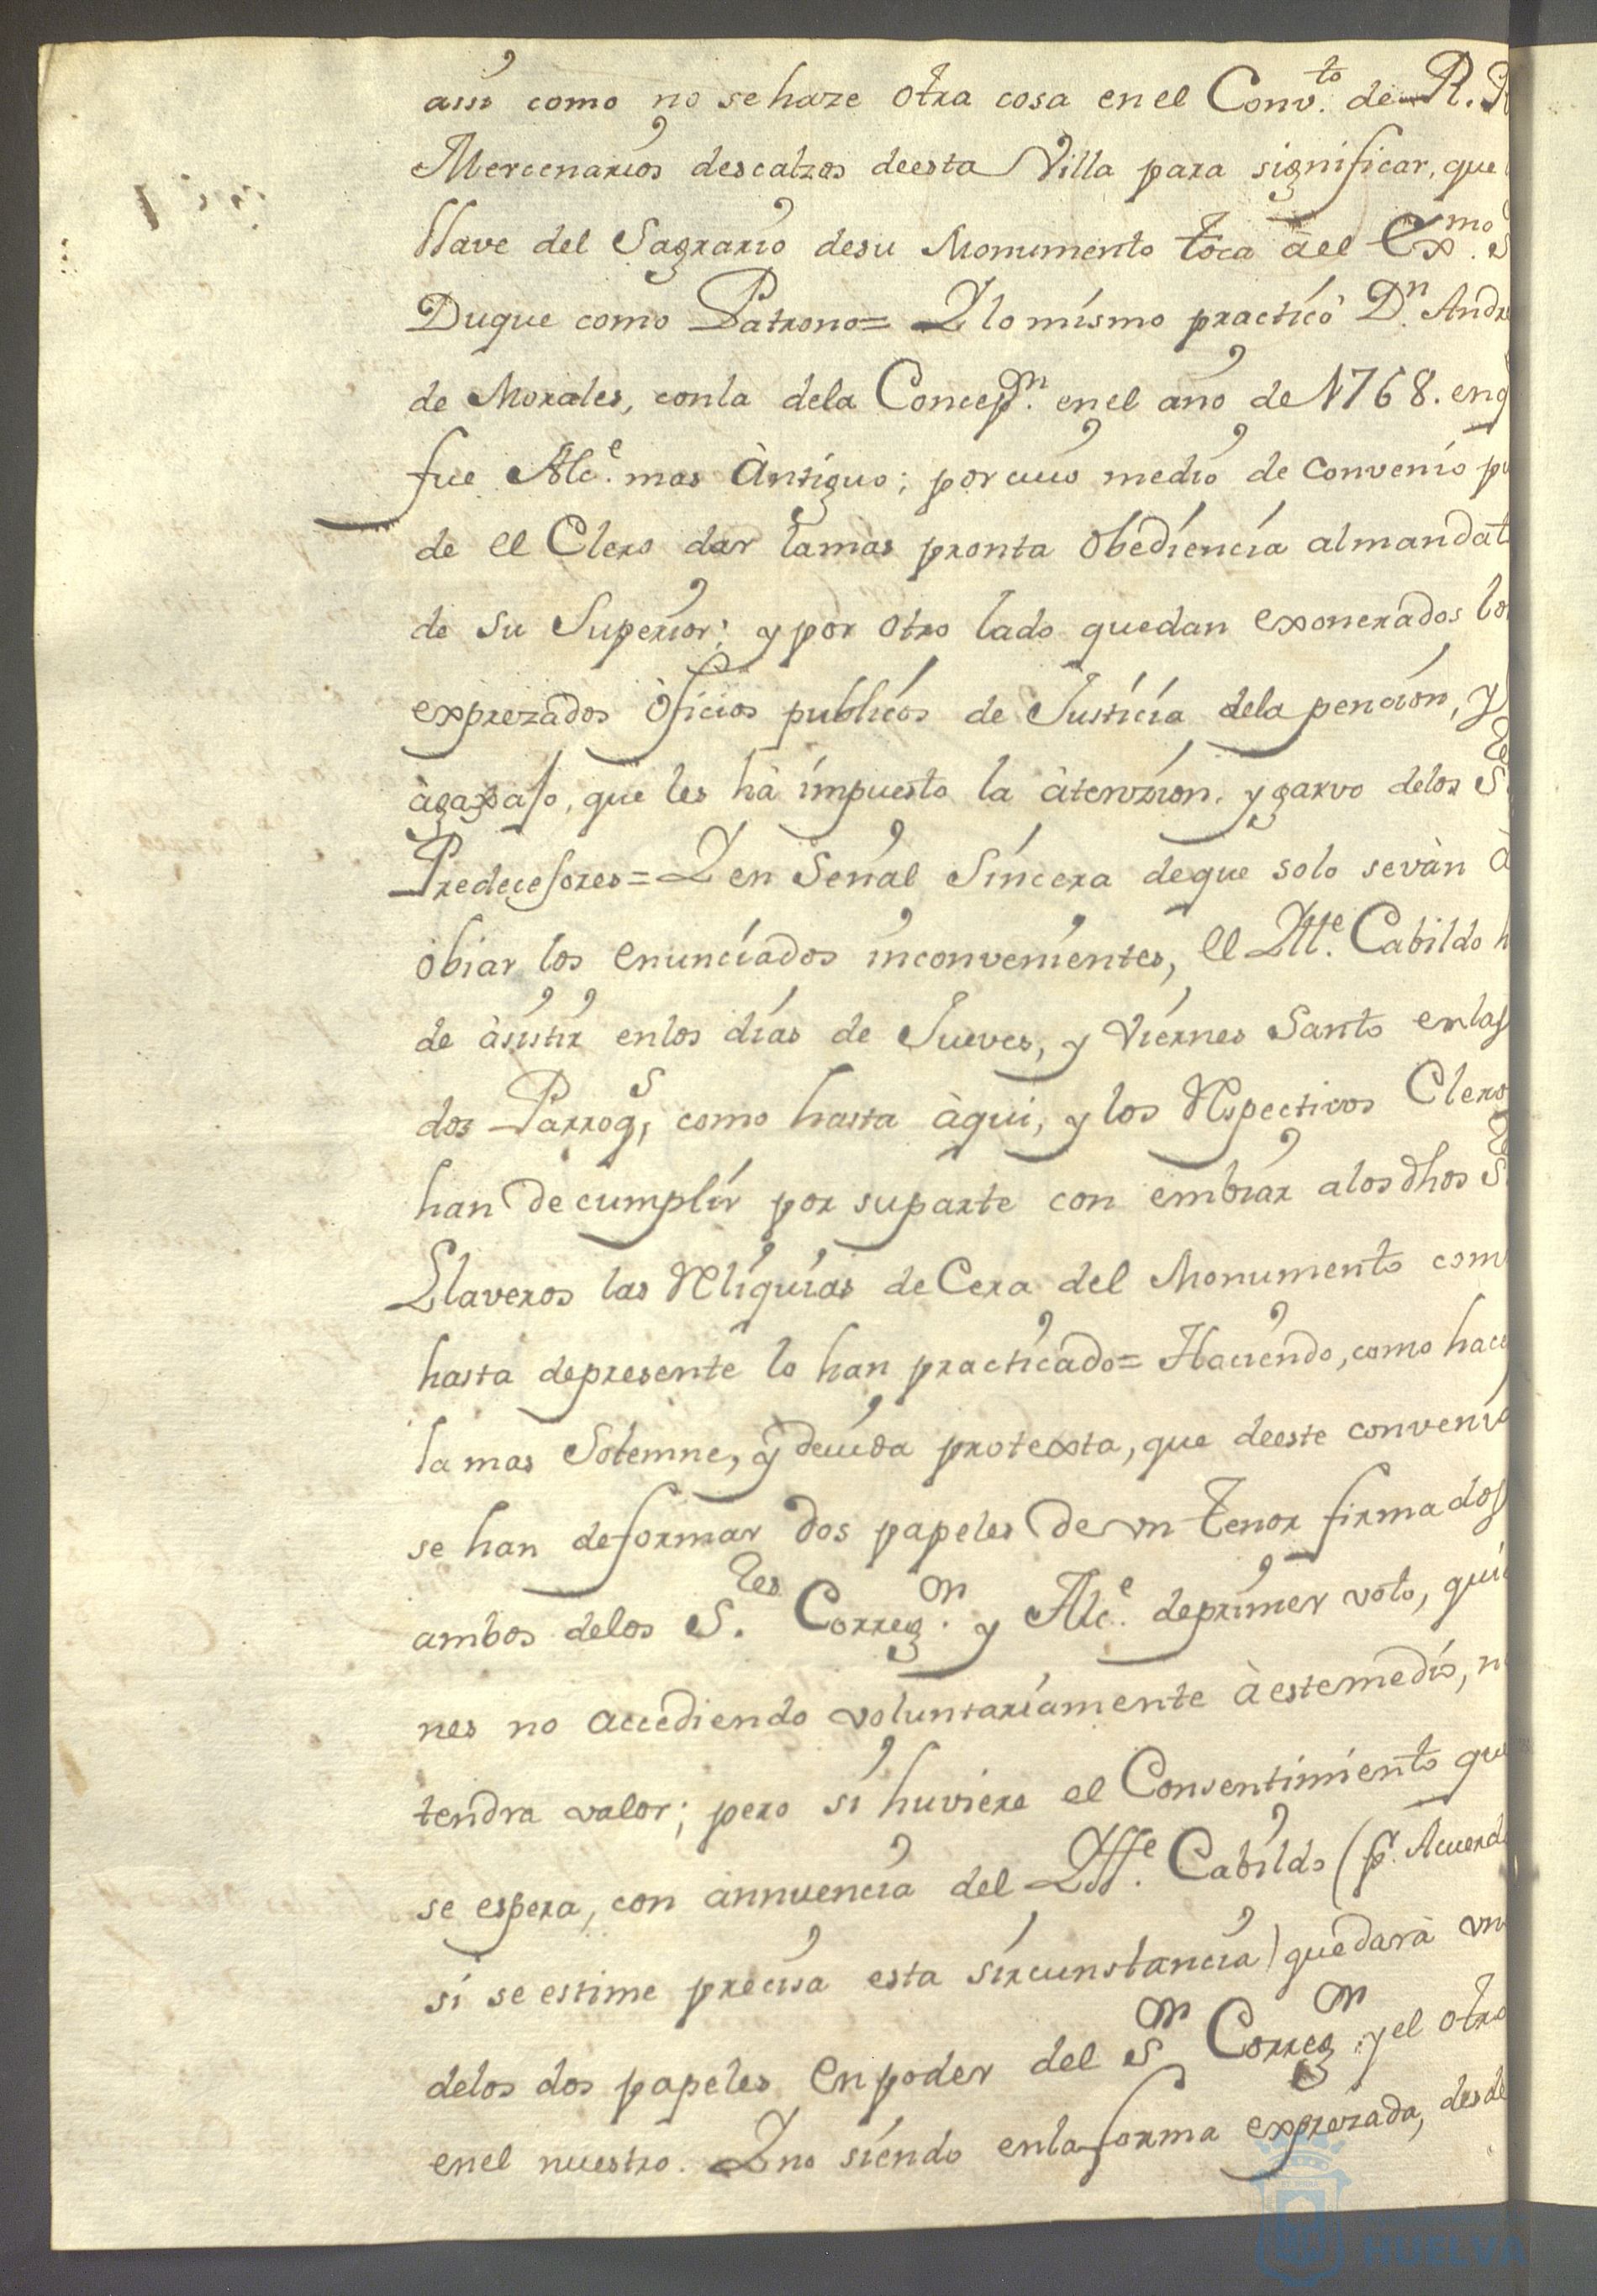 assi como no se haze otra cosa en el Conv.to de R. R
Mercenarios descalzos deesta Villa para significar, que
llave del Sagrario desu Monumento toca àel Exmo. S
Duque como Patrono= Y lo mismo practicò Dn. Andr
de Morales, con la dela Concepn. en el año de 1768. en q
fue Alce. mas Àntiguo; por cuio medio de convenio pu
de el Clero dar la mas pronta obediencia al mandat
de su Superior; y por otro lado quedan exonerados lo
exprezados òficios publicos de Justicia dela pencion, y
àgaxaso, que les hà impuesto la àtenzion. y garvo delos S.res
Predecesores= Y en señal sincera deque solo se vàn à
obiar los enunciados inconvenientes, el Ylle. Cabildo h
de àsistir en los dias de Jueves, y Viernes Santo en las
dos Parroqs, como hasta àqui, y los Respectivos Clero
han de cumplir por su parte con embiar a los dhos S.res
Llaveros las Reliquias de Cera del Monumento com
hasta depresente lo han practicado= Haciendo, como hace
la mas Solemne, y devida protexta, que deeste conveni
se han deformar dos papeles de vn tenor firmados
ambos delos S.res Correg.r y Alce. deprimer voto, quie
nes no accediendo voluntariamente à este medio, n
tendra valor; pero si huviere el Consentimiento que
se espera, con annuencia del Ylle. Cabildo (pr. Acuerd
si se estime precisa esta sircunstancia) quedarà vn
delos dos papeles en poder del Sr. Corregr. y el otro
en el nuestro. Y no siendo en la forma exprezada, desde
HUELVA